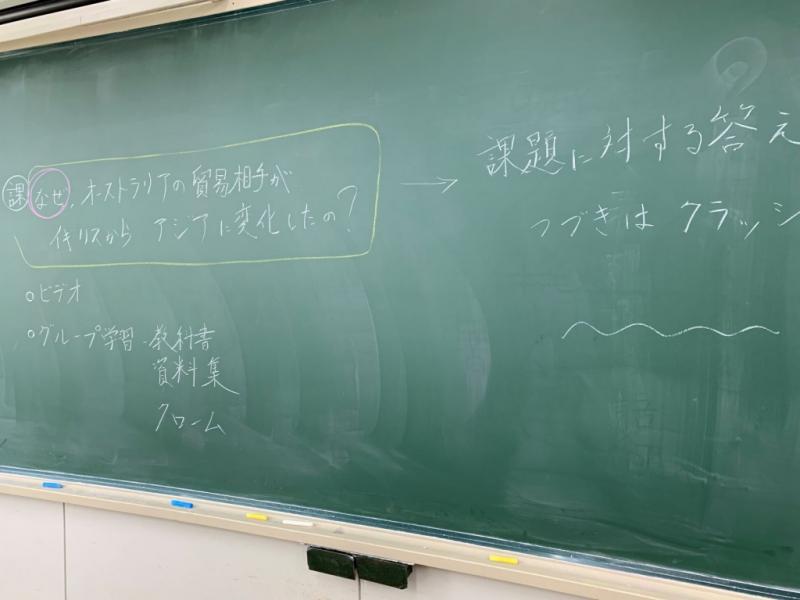 課 なぜ、オーストラリアの貿易相手が
イギリスから アジアに変化したの?
○ビデオ
○グループ学習・教科書
資料集
クローム
→ 課題に対する答え
つづきは クラッシ